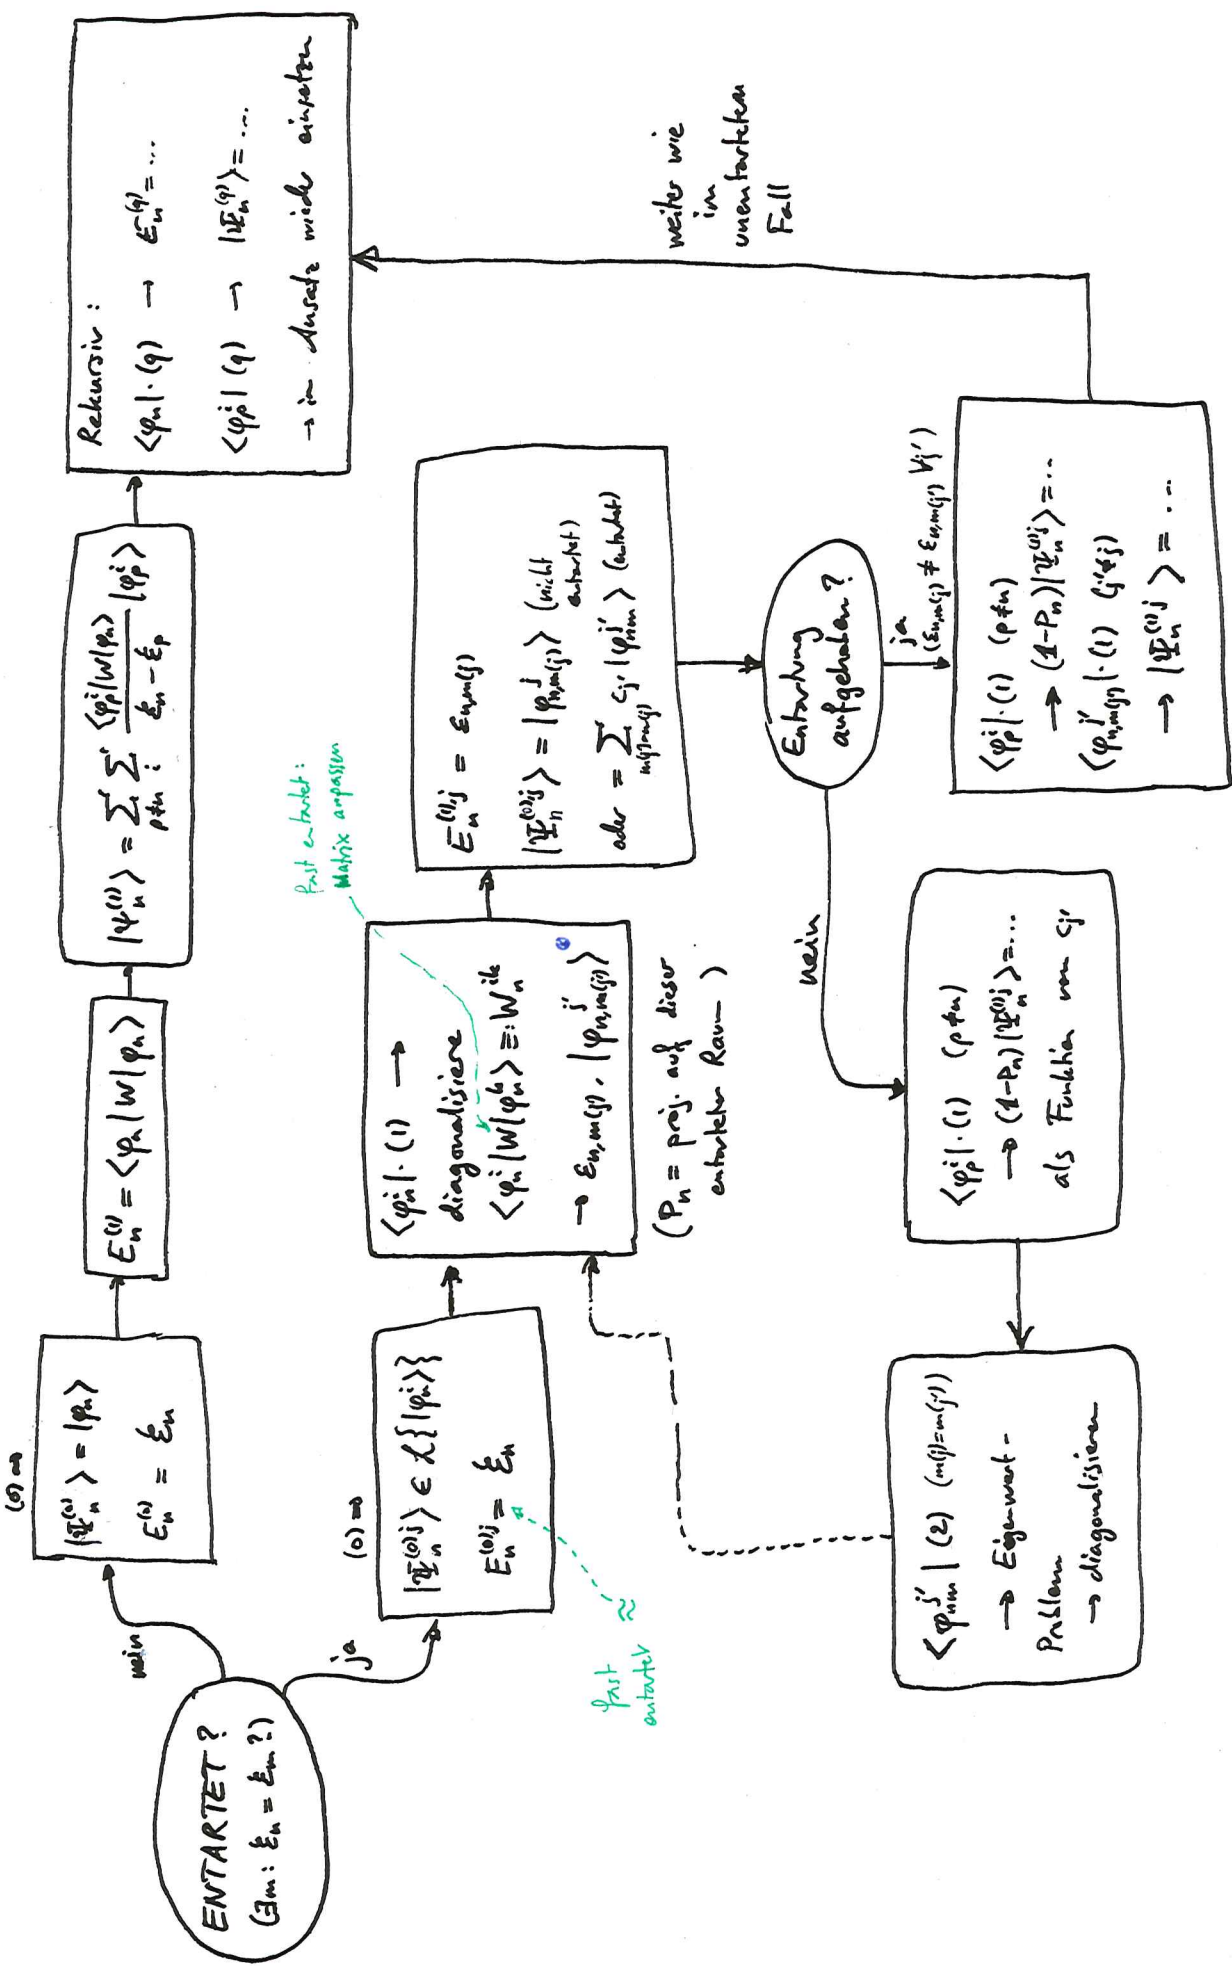 ENTARTET?
(∃m: ℰₙ = ℰₘ?)
nein
(0) ⇒
|Ψₙ⁽⁰⁾⟩ = |φₙ⟩
Eₙ⁽⁰⁾ = ℰₙ
Eₙ⁽¹⁾ = ⟨φₙ|W|φₙ⟩
|Ψₙ⁽¹⁾⟩ = Σ_{p≠n} Σ_i ⟨φₚⁱ|W|φₙ⟩ / (ℰₙ − ℰₚ) |φₚⁱ⟩
Rekursiv:
⟨φₙ|·(q) → Eₙ⁽q⁾ = ...
⟨φₚⁱ|(q) → |Ψₙ⁽q⁾⟩ = ....
→ in Ansatz wieder einsetzen
ja
(0) ⇒
|Ψₙ⁽⁰⁾ʲ⟩ ∈ ℒ{|φₙⁱ⟩}
Eₙ⁽⁰⁾ʲ = ℰₙ
fast
entartet ≈
⟨φₙⁱ|·(1) →
diagonalisiere
⟨φₙⁱ|W|φₙᵏ⟩ =: Wₙⁱᵏ
→ ε_{n,m(j)}, |φ_{n,m(j)}^{j}⟩
(Pₙ = proj. auf dieser
entarteten Raum)
fast entartet:
Matrix anpassen
Eₙ⁽¹⁾ʲ = ε_{n,m(j)}
|Ψₙ⁽⁰⁾ʲ⟩ = |φ_{n,m(j)}^{j}⟩ (nicht
entartet)
oder = Σ_{m(j')=m(j)} c_{j'} |φ_{nm}^{j'}⟩ (entartet)
Entartung
aufgehoben?
ja
(ε_{n,m(j)} ≠ ε_{n,m(j')} ∀j')
⟨φₚⁱ|·(1) (p≠n)
→ (1−Pₙ)|Ψₙ⁽¹⁾ʲ⟩ = ...
⟨φ_{n,m(j')}^{j'}|·(1) (j'≠j)
→ |Ψₙ⁽¹⁾ʲ⟩ = ...
weiter wie
im
unentarteten
Fall
nein
⟨φₚⁱ|·(1) (p≠n)
→ (1−Pₙ)|Ψₙ⁽¹⁾ʲ⟩ = ...
als Funktion von c_{j'}
⟨φ_{nm}^{j'}|(2) (m(j)=m(j'))
→ Eigenwert-
Problem
→ diagonalisieren